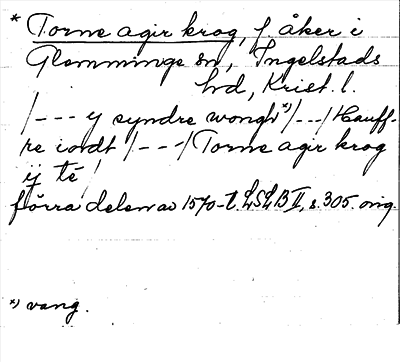 * Torne agir krog, f. åker i
Glemminge sn, Ingelstads
hd, Krist. l.
/--- y syndre wongh *)/---/ Hauff-
re iordt /---/ Torne agir krog
ij tē /
förra delen av 1570-t. LSLB II, s. 305. orig.
*) vang.